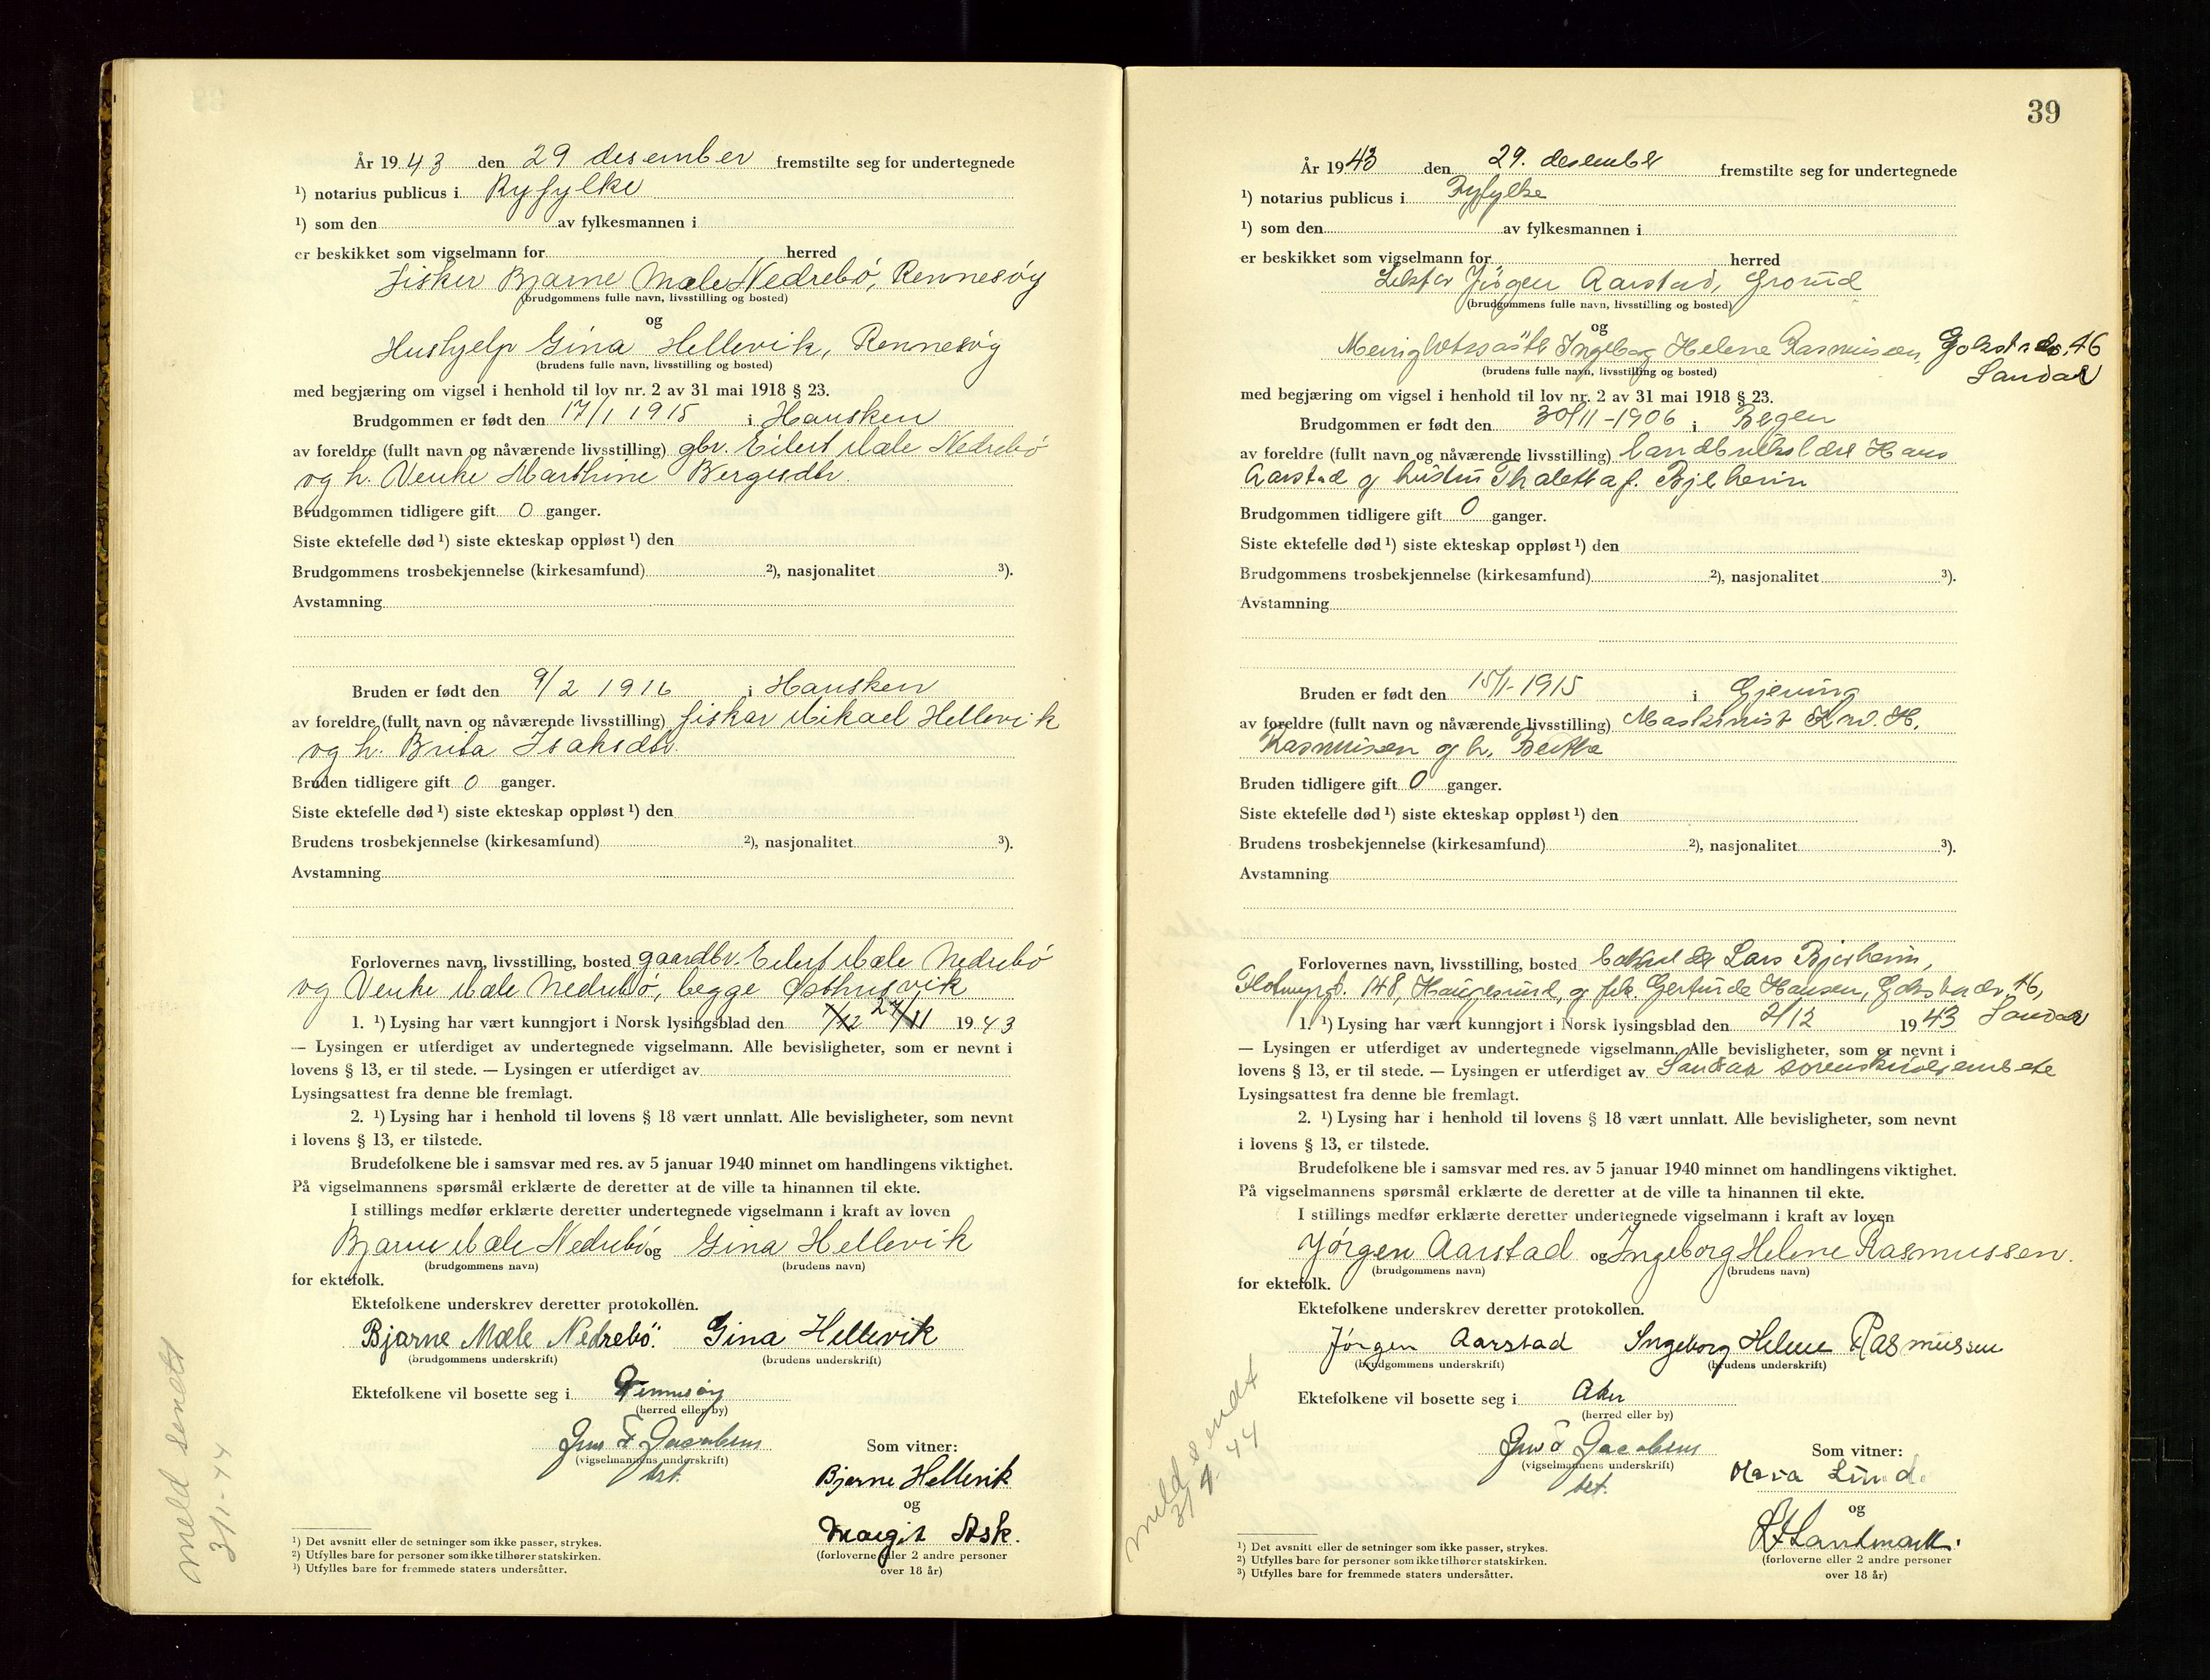 År 1943 den 29 desember fremstilte seg for undertegnede
¹) notarius publicus i Ryfylke
¹) som den av fylkesmannen i
er beskikket som vigselmann for herred
fisker Bjarne Mæle Nedrebö, Rennesöy
(brudgommens fulle navn, livsstilling og bosted)
og
Hushjelp Gina Hellevik, Rennesöy
(brudens fulle navn, livsstilling og bosted)
med begjæring om vigsel i henhold til lov nr. 2 av 31 mai 1918 § 23.
Brudgommen er født den 17/1 1915 i Hausken
av foreldre (fullt navn og nåværende livsstilling) gbr. Eilert Mæle Nedrebö
og h. Venke Marthine Bergesdtr.
Brudgommen tidligere gift 0 ganger.
Siste ektefelle død ¹) siste ekteskap oppløst ¹) den
Brudgommens trosbekjennelse (kirkesamfund) ²), nasjonalitet ³).
Avstamning
Bruden er født den 9/2 1916 i Hausken
av foreldre (fullt navn og nåværende livsstilling) fisker Mikael Hellevik
og h. Brita Isaksdtr.
Bruden tidligere gift 0 ganger.
Siste ektefelle død ¹) siste ekteskap oppløst ¹) den
Brudens trosbekjennelse (kirkesamfund) ²), nasjonalitet ³).
Avstamning
Forlovernes navn, livsstilling, bosted gaardbr. Eilert Mæle Nedrebö
og Venke Mæle Nedrebö, begge Østhusvik
1. ¹) Lysing har vært kunngjort i Norsk lysingsblad den 7/12 27/11 1943
— Lysingen er utferdiget av undertegnede vigselmann. Alle bevisligheter, som er nevnt i
lovens § 13, er til stede. — Lysingen er utferdiget av
Lysingsattest fra denne ble fremlagt.
2. ¹) Lysing har i henhold til lovens § 18 vært unnlatt. Alle bevisligheter, som nevnt
i lovens § 13, er tilstede.
Brudefolkene ble i samsvar med res. av 5 januar 1940 minnet om handlingens viktighet.
På vigselmannens spørsmål erklærte de deretter at de ville ta hinannen til ekte.
I stillings medfør erklærte deretter undertegnede vigselmann i kraft av loven
Bjarne Mæle Nedrebö og Gina Hellevik
(brudgommens navn) (brudens navn)
for ektefolk.
Ektefolkene underskrev deretter protokollen.
Bjarne Mæle Nedrebö. Gina Hellevik
(brudgommens underskrift) (brudens underskrift)
Ektefolkene vil bosette seg i Rennesøy
(herred eller by)
Jens F Jacobsen
(vigselmannens underskrift)
bst.
Som vitner:
Bjarne Hellevik
og
Margit Ask.
(forloverne eller 2 andre personer
over 18 år)
¹) Det avsnitt eller de setninger som ikke passer, strykes.
²) Utfylles bare for personer som ikke tilhører statskirken.
³) Utfylles bare for fremmede staters undersåtter.
Meld sendt
3/1-44
39
År 1943 den 29. desember fremstilte seg for undertegnede
¹) notarius publicus i Ryfylke
¹) som den av fylkesmannen i
er beskikket som vigselmann for herred
Lektor Jörgen Aarstad, Grorud
(brudgommens fulle navn, livsstilling og bosted)
og
Ingeborg Helene Rasmussen, Gokstadv. 46
Sandar
(brudens fulle navn, livsstilling og bosted)
med begjæring om vigsel i henhold til lov nr. 2 av 31 mai 1918 § 23.
Brudgommen er født den 30/11-1906 i Bergen
av foreldre (fullt navn og nåværende livsstilling) Hans
Aarstad og hustru Thaletta f. Bjelheim
Brudgommen tidligere gift 0 ganger.
Siste ektefelle død ¹) siste ekteskap oppløst ¹) den
Brudgommens trosbekjennelse (kirkesamfund) ²), nasjonalitet ³).
Avstamning
Bruden er født den 15/1-1915 i
av foreldre (fullt navn og nåværende livsstilling) Maskinist H.
Rasmussen og h. Berthe
Bruden tidligere gift 0 ganger.
Siste ektefelle død ¹) siste ekteskap oppløst ¹) den
Brudens trosbekjennelse (kirkesamfund) ²), nasjonalitet ³).
Avstamning
Forlovernes navn, livsstilling, bosted Lars Bjelheim,
Flotmyrgt. 148, Haugesund, og frk. Gertrude Hansen, Gokstadv. 46,
1. ¹) Lysing har vært kunngjort i Norsk lysingsblad den 2/12 1943 Sandar
— Lysingen er utferdiget av undertegnede vigselmann. Alle bevisligheter, som er nevnt i
lovens § 13, er til stede. — Lysingen er utferdiget av Sandar sorenskriverembete
Lysingsattest fra denne ble fremlagt.
2. ¹) Lysing har i henhold til lovens § 18 vært unnlatt. Alle bevisligheter, som nevnt
i lovens § 13, er tilstede.
Brudefolkene ble i samsvar med res. av 5 januar 1940 minnet om handlingens viktighet.
På vigselmannens spørsmål erklærte de deretter at de ville ta hinannen til ekte.
I stillings medfør erklærte deretter undertegnede vigselmann i kraft av loven
Jørgen Aarstad og Ingeborg Helene Rasmussen.
(brudgommens navn) (brudens navn)
for ektefolk.
Ektefolkene underskrev deretter protokollen.
Jørgen Aarstad Ingeborg Helene Rasmussen
(brudgommens underskrift) (brudens underskrift)
Ektefolkene vil bosette seg i Aker
(herred eller by)
Jens F Jacobsen
(vigselmannens underskrift)
bst.
Som vitner:
Mava Lund.
og
Landmark.
(forloverne eller 2 andre personer
over 18 år)
¹) Det avsnitt eller de setninger som ikke passer, strykes.
²) Utfylles bare for personer som ikke tilhører statskirken.
³) Utfylles bare for fremmede staters undersåtter.
meld sendt